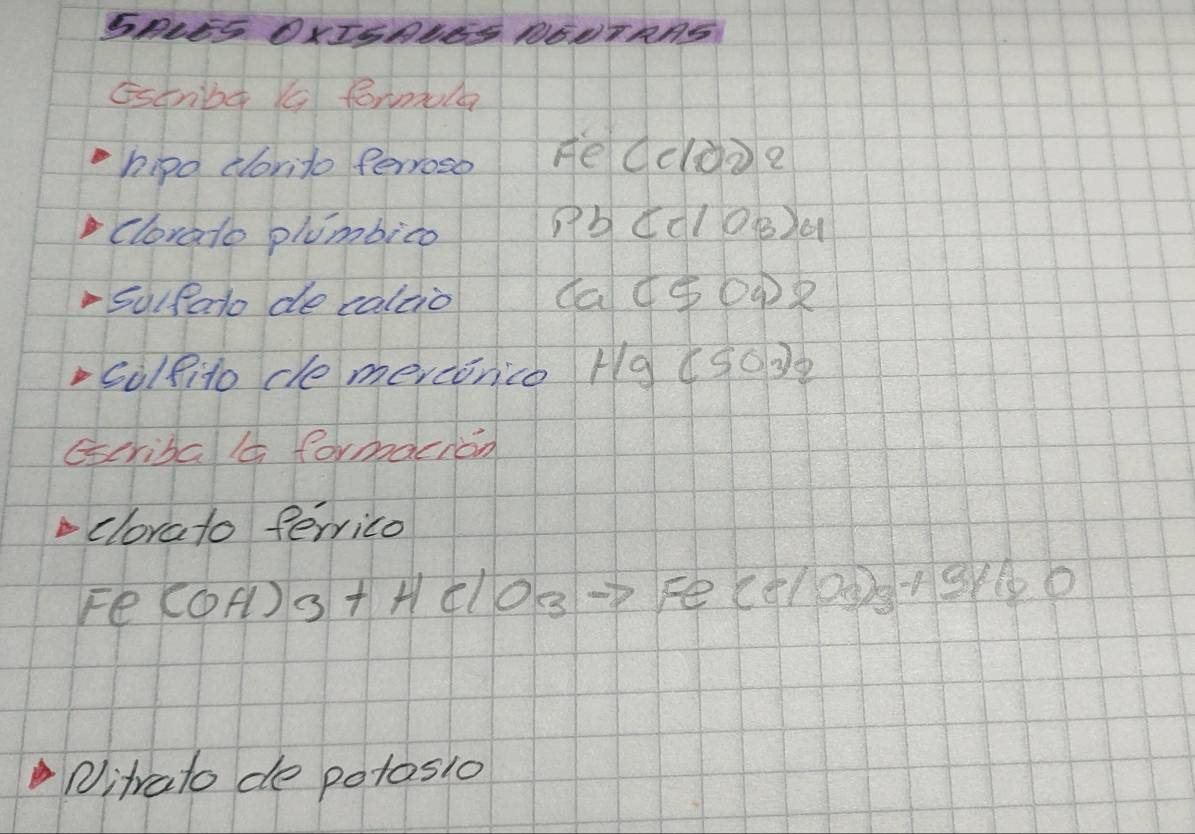 SALES OXISALES NEUTRAS
Escriba la formula
hipo clorito ferroso Fe(ClO2)2
Clorato plúmbico Pb(ClO3)4
Sulfato de calcio Ca(SO4)2
Sulfito de mercúrico Hg(SO3)2
Escriba la formación
Clorato férrico
Fe(OH)3 + HClO3 → Fe(ClO3)3 + 3H2O
Nitrato de potasio